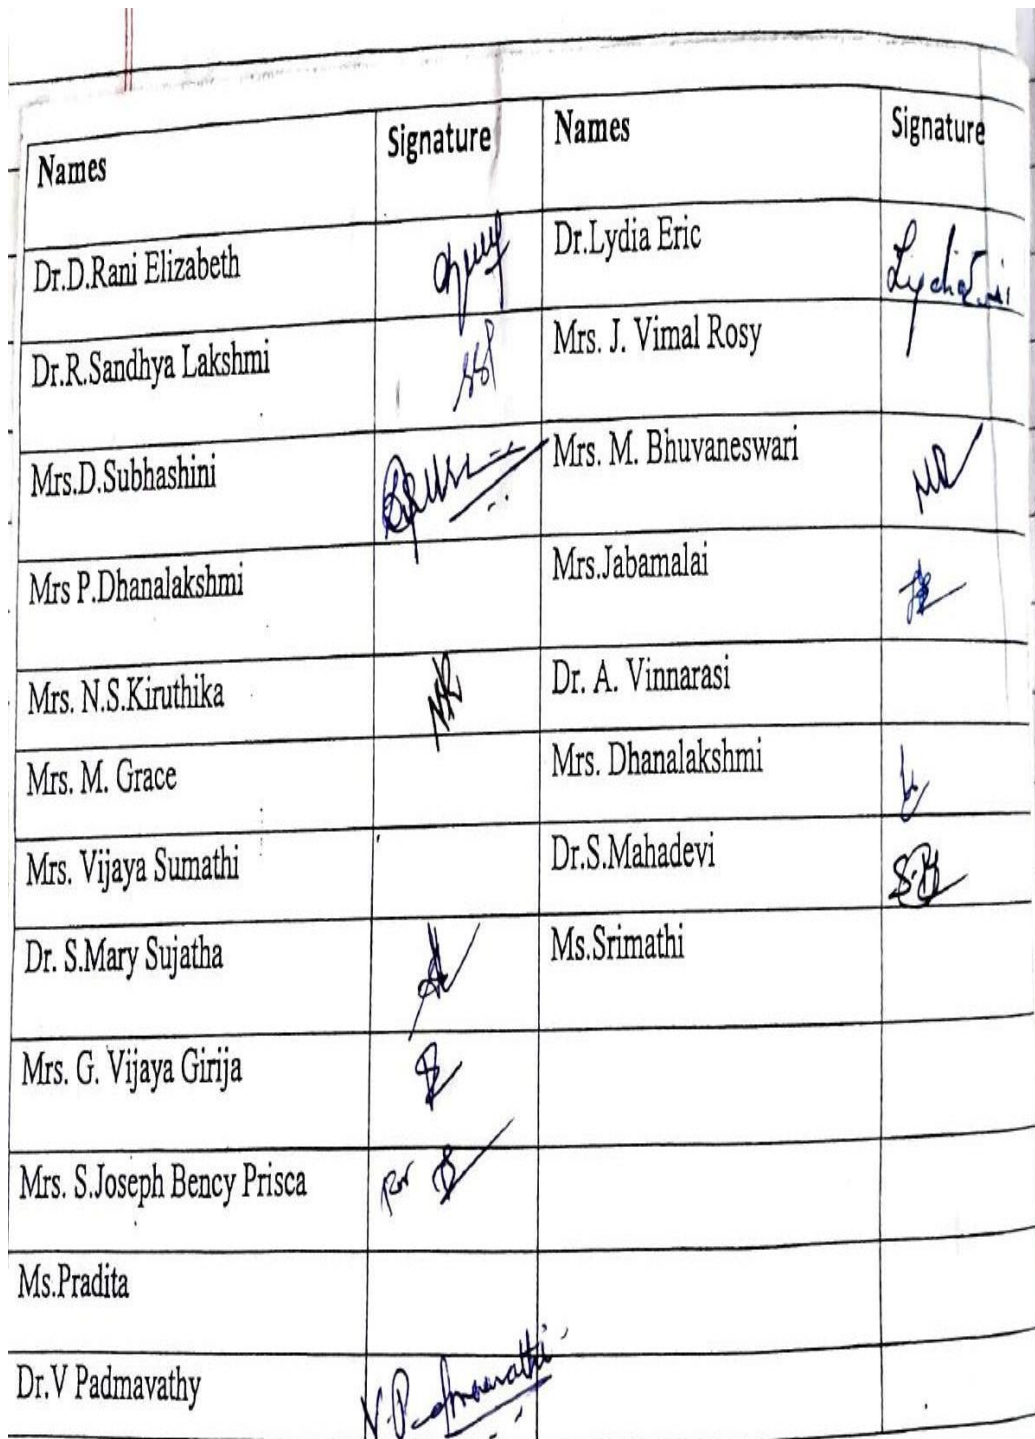 Names Signature Names Signature
Dr.D.Rani Elizabeth Dr.Lydia Eric
Dr.R.Sandhya Lakshmi Mrs. J. Vimal Rosy
Mrs.D.Subhashini Mrs. M. Bhuvaneswari
Mrs P.Dhanalakshmi Mrs.Jabamalai
Mrs. N.S.Kiruthika Dr. A. Vinnarasi
Mrs. M. Grace Mrs. Dhanalakshmi
Mrs. Vijaya Sumathi Dr.S.Mahadevi
Dr. S.Mary Sujatha Ms.Srimathi
Mrs. G. Vijaya Girija
Mrs. S.Joseph Bency Prisca
Ms.Pradita
Dr.V Padmavathy